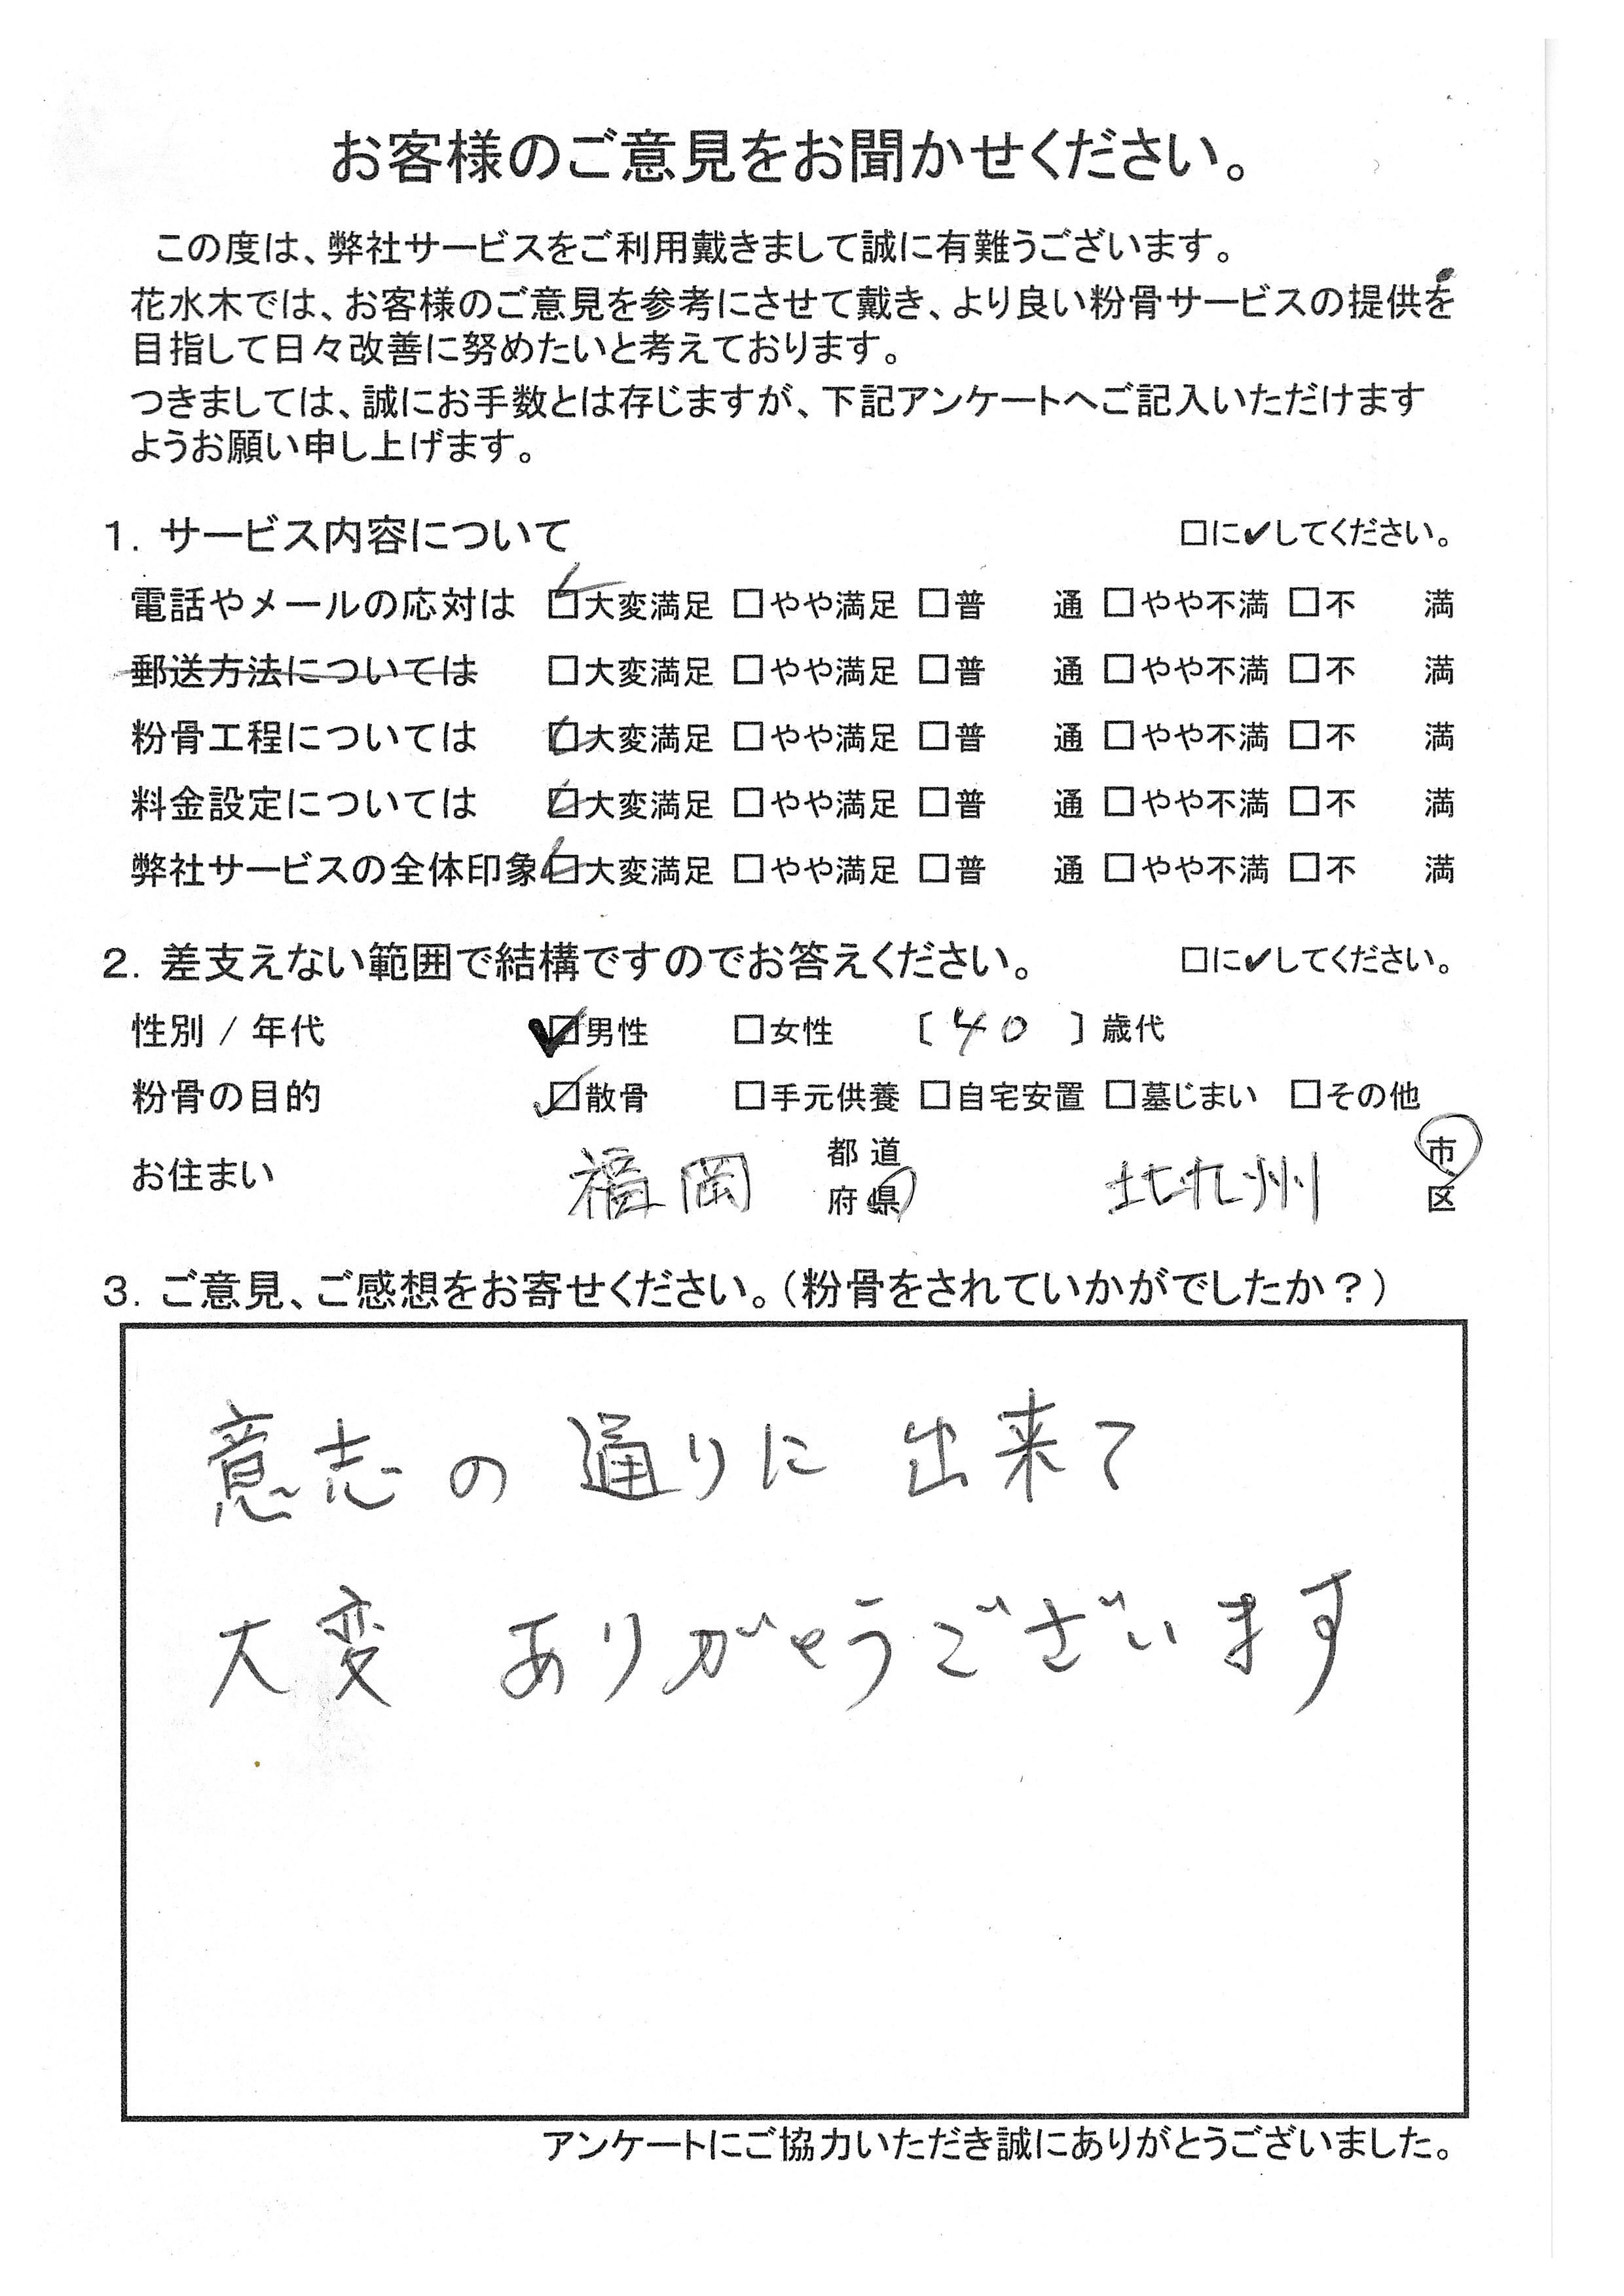 お客様のご意見をお聞かせください。
この度は、弊社サービスをご利用戴きまして誠に有難うございます。
花水木では、お客様のご意見を参考にさせて戴き、より良い粉骨サービスの提供を
目指して日々改善に努めたいと考えております。
つきましては、誠にお手数とは存じますが、下記アンケートへご記入いただけます
ようお願い申し上げます。
1. サービス内容について □に✔してください。
電話やメールの応対は ☑大変満足 □やや満足 □普 通 □やや不満 □不 満
郵送方法については □大変満足 □やや満足 □普 通 □やや不満 □不 満
粉骨工程については ☑大変満足 □やや満足 □普 通 □やや不満 □不 満
料金設定については ☑大変満足 □やや満足 □普 通 □やや不満 □不 満
弊社サービスの全体印象 ☑大変満足 □やや満足 □普 通 □やや不満 □不 満
2. 差支えない範囲で結構ですのでお答えください。 □に✔してください。
性別 / 年代 ☑男性 □女性 〔 40 〕歳代
粉骨の目的 ☑散骨 □手元供養 □自宅安置 □墓じまい □その他
お住まい 福岡 都道府県 北九州 市区
3. ご意見、ご感想をお寄せください。（粉骨をされていかがでしたか？）
意志の通りに出来て
大変ありがとうございます
アンケートにご協力いただき誠にありがとうございました。